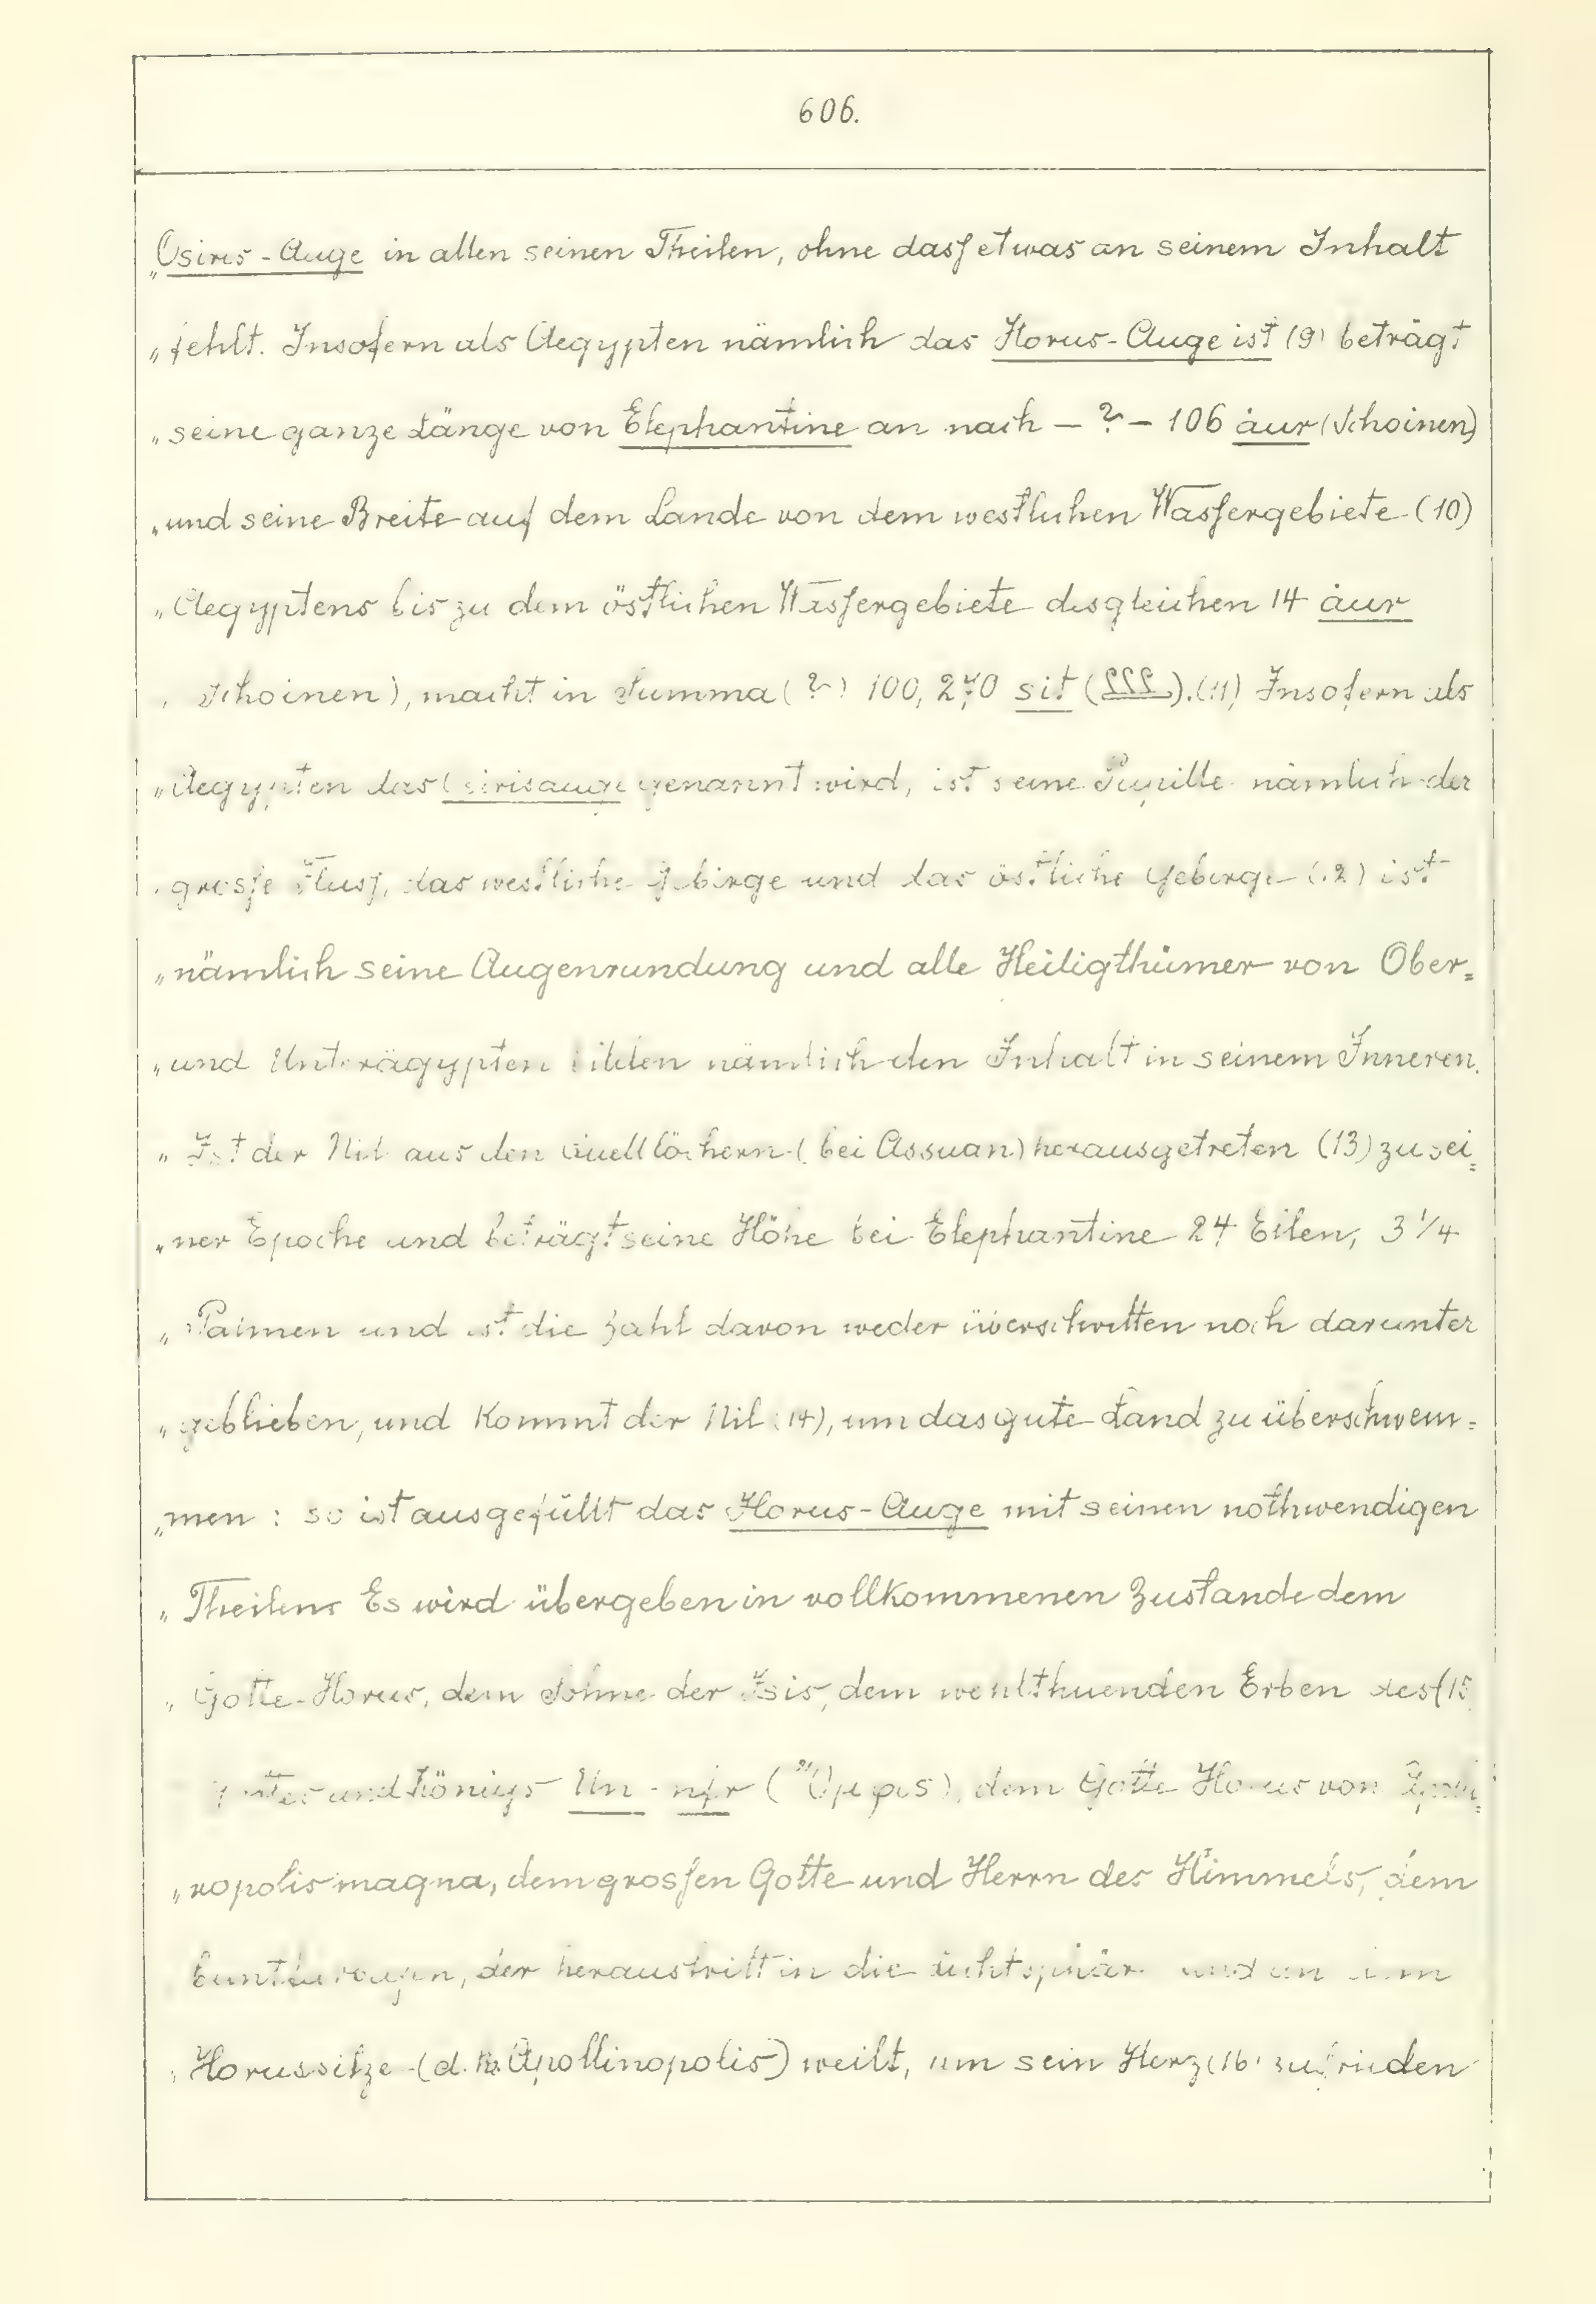 606.
„Osiris-Auge in allen seinen Theilen, ohne dass etwas an seinem Inhalt
„fehlt. Insofern als Aegypten nämlich das Horus-Auge ist (9) beträgt
„seine ganze Länge von Elephantine an nach – ? – 106 àur (Schoinen)
„und seine Breite auf dem Lande von dem westlichen Wassergebiete (10)
„Aegyptens bis zu dem östlichen Wassergebiete desgleichen 14 àur
„Schoinen), macht in Summa (?) 100, 270 sit ( ). (11) Insofern als
„Aegypten das Osirisauge genannt wird, ist seine Pupille nämlich der
„grosse Fluss, das westliche Gebirge und das östliche Gebirge (12) ist
„nämlich seine Augenrundung und alle Heiligthümer von Ober=
„und Unterägypten bilden nämlich den Inhalt in seinem Inneren.
„Ist der Nil aus den Quelllöchern (bei Assuan) herausgetreten (13) zu sei=
„ner Epoche und beträgt seine Höhe bei Elephantine 24 Ellen, 3 1/4
„Palmen und ist die Zahl davon weder überschritten noch darunter
„geblieben, und kommt der Nil (14), um das gute Land zu überschwem=
„men: so ist ausgefüllt das Horus-Auge mit seinen nothwendigen
„Theilen. Es wird übergeben in vollkommenen Zustande dem
„Gotte Horus, dem Sohne der Isis, dem wohlthuenden Erben des (15
Gottes und Königs Un-nfr (Ὄμφις), dem Gotte Horus von Apolli=
„nopolis magna, dem grossen Gotte und Herrn des Himmels, dem
der heraustritt in die Lichtsphäre und an
„Horussitze (d. h. Apollinopolis) weilt, um sein Herz (16) zufrieden